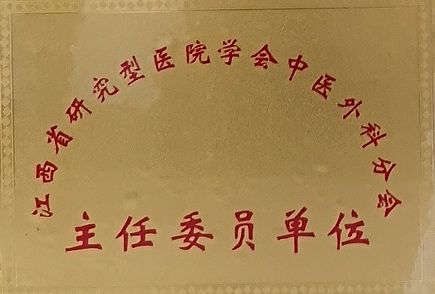 江西省研究型医院学会中医外科分会
主任委员单位